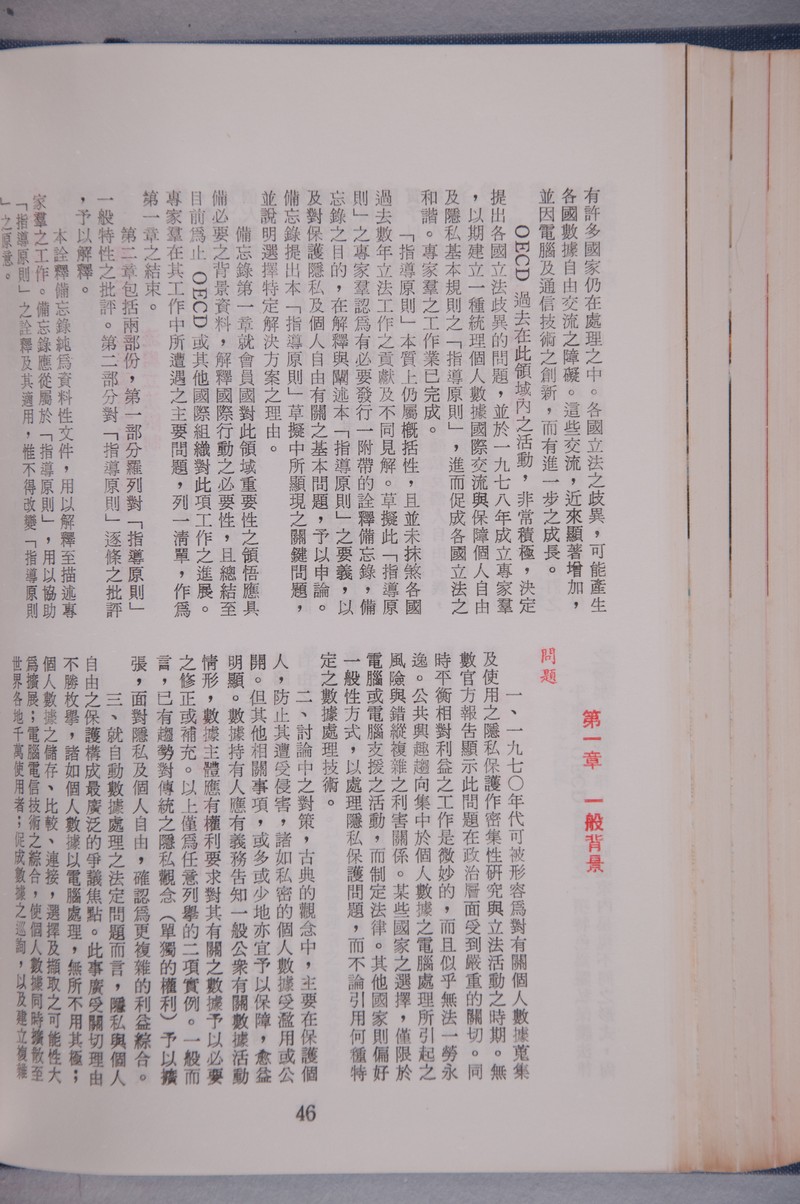 有許多國家仍在處理之中。各國立法之歧異，可能產生
各國數據自由交流之障礙。這些交流，近來顯著增加，
並因電腦及通信技術之創新，而有進一步之成長。
OECD 過去在此領域內之活動，非常積極，決定
提出各國立法歧異的問題，並於一九七八年成立專家羣
，以期建立一種統理個人數據國際交流與保障個人自由
及隱私基本規則之「指導原則」，進而促成各國立法之
和諧。專家羣之工作業已完成。
「指導原則」本質上仍屬概括性，且並未抹煞各國
過去數年立法工作之貢獻及不同見解。草擬此「指導原
則」之專家羣認爲有必要發行一附帶的詮釋備忘錄，備
忘錄之目的，在解釋與闡述本「指導原則」之要義，以
及對保護隱私及個人自由有關之基本問題，予以申論。
備忘錄提出本「指導原則」草擬中所顯現之關鍵問題，
並說明選擇特定解決方案之理由。
備忘錄第一章就會員國對此領域重要性之領悟應具
備必要之背景資料，解釋國際行動之必要性，且總結至
目前爲止 OECD 或其他國際組織對此項工作之進展。
專家羣在其工作中所遭遇之主要問題，列一清單，作爲
第一章之結束。
第二章包括兩部份，第一部分羅列對「指導原則」
一般特性之批評。第二部分對「指導原則」逐條之批評
，予以解釋。
本詮釋備忘錄純爲資料性文件，用以解釋至描述專
家羣之工作。備忘錄應從屬於「指導原則」，用以協助
「指導原則」之詮釋及其適用，惟不得改變「指導原則
」之原意。
第一章 一般背景
問題
一、一九七〇年代可被形容爲對有關個人數據蒐集
及使用之隱私保護作密集性研究與立法活動之時期。無
數官方報告顯示此問題在政治層面受到嚴重的關切。同
時平衡相對利益之工作是微妙的，而且似乎無法一勞永
逸。公共興趣趨向集中於個人數據之電腦處理所引起之
風險與錯縱複雜之利害關係。某些國家之選擇，僅限於
電腦或電腦支援之活動，而制定法律。其他國家則偏好
一般性方式，以處理隱私保護問題，而不論引用何種特
定之數據處理技術。
二、討論中之對策，古典的觀念中，主要在保護個
人，防止其遭受侵害，諸如私密的個人數據受濫用或公
開。但其他相關事項，或多或少地亦宜予以保障，愈益
明顯。數據持有人應有義務告知一般公衆有關數據活動
情形，數據主體應有權利要求對其有關之數據予以必要
之修正或補充。以上僅爲任意列舉的二項實例。一般而
言，已有趨勢對傳統之隱私觀念（單獨的權利）予以擴
張，面對隱私及個人自由，確認爲更複雜的利益綜合。
三、就自動數據處理之法定問題而言，隱私與個人
自由之保護構成最廣泛的爭議焦點。此事廣受關切理由
不勝枚舉，諸如個人數據以電腦處理，無所不用其極；
個人數據之儲存、比較、連接，選擇及擷取之可能性大
爲擴展；電腦電信技術之綜合，使個人數據同時擴散至
世界各地千萬使用者；促成數據之巡迴，以及建立複雜
46